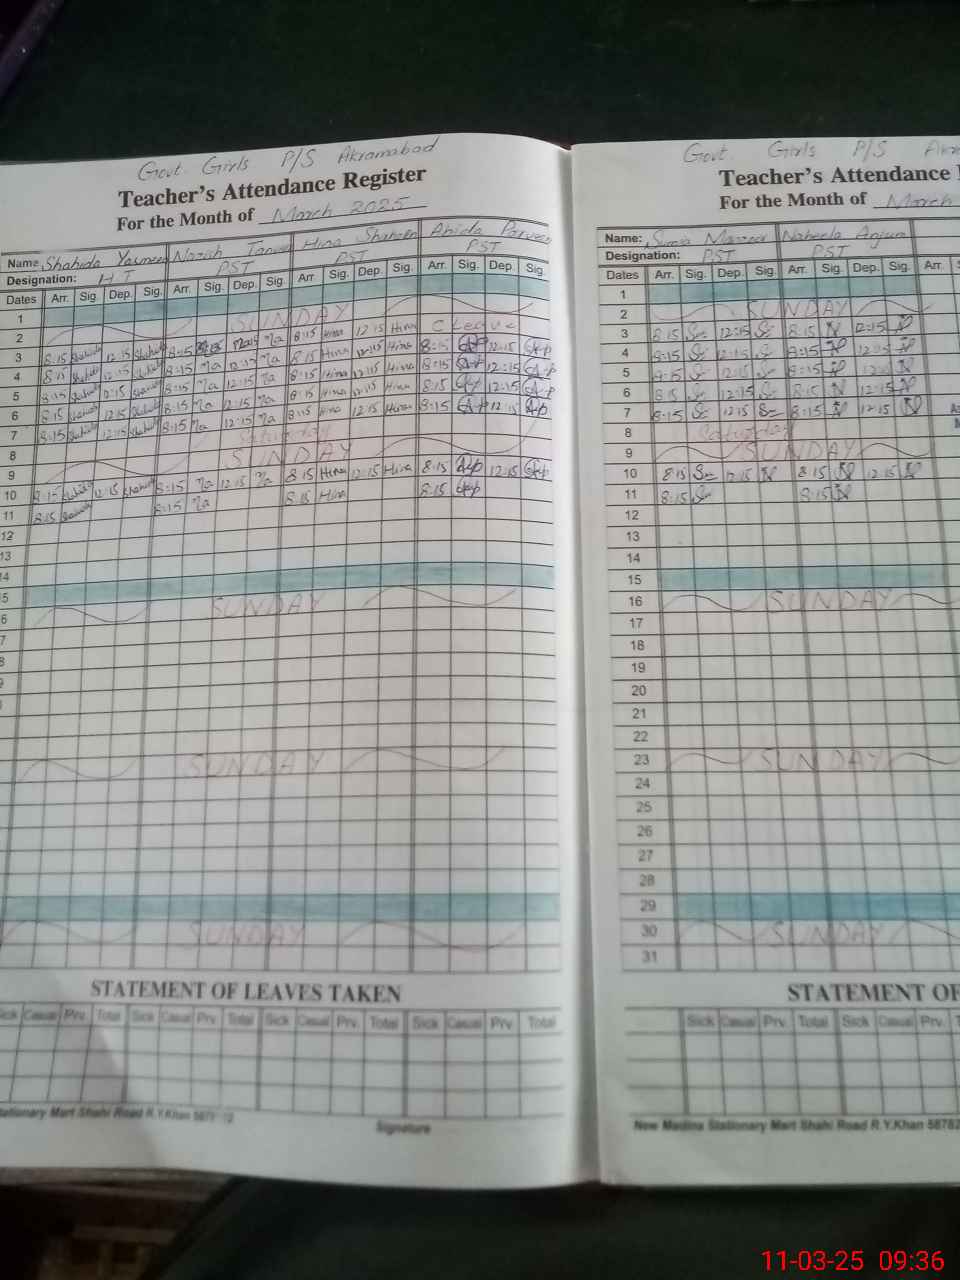 Govt. Girls P/S Akramabad
Teacher's Attendance Register
For the Month of March 2025
Name Shahida Yasmeen Nazish Hina Shaheen Abida Parveen
Designation: H.T PST PST PST
Dates Arr. Sig. Dep. Sig. Arr. Sig. Dep. Sig. Arr. Sig. Dep. Sig. Arr. Sig. Dep. Sig.
1
2 SUNDAY
3 8:15 Shahida 12:15 Shahida 8:15 12:15 Na 8:15 Hina 12:15 Hina C Leave
4 8:15 Shahida 12:15 Shahida 8:15 Na 12:15 Na 8:15 Hina 12:15 Hina 8:15 12:15
5 8:15 Shahida 12:15 Shahida 8:15 Na 12:15 Na 8:15 Hina 12:15 Hina 8:15 12:15
6 8:15 Shahida 12:15 Shahida 8:15 Na 12:15 Na 8:15 Hina 12:15 Hina 8:15 12:15
7 8:15 Shahida 12:15 Shahida 8:15 Na 12:15 Na 8:15 Hina 12:15 Hina 8:15 12:15
8 Saturday
9 SUNDAY
10 8:15 Shahida 12:15 Shahida 8:15 Na 12:15 Na 8:15 Hina 12:15 Hina 8:15 12:15
11 8:15 Shahida 8:15 Na 8:15 Hina 8:15
12
13
14
5
6 SUNDAY
7
8
9
SUNDAY
SUNDAY
STATEMENT OF LEAVES TAKEN
Sick Casual Prv. Total Sick Casual Prv. Total Sick Casual Prv. Total Sick Casual Prv. Total
Stationary Mart Shahi Road R.Y.Khan
Signature
Govt. Girls P/S
Teacher's Attendance
For the Month of March
Name: Sumia Manzoor Naheela Anjum
Designation: PST PST
Dates Arr. Sig. Dep. Sig. Arr. Sig. Dep. Sig. Arr.
1
2 SUNDAY
3 8:15 12:15 8:15 N 12:15 N
4 8:15 12:15 8:15 N 12:15 N
5 8:15 12:15 8:15 N 12:15 N
6 8:15 12:15 8:15 N 12:15 N
7 8:15 12:15 8:15 N 12:15 N
8 Saturday
9 SUNDAY
10 8:15 12:15 N 8:15 N 12:15 N
11 8:15 8:15 N
12
13
14
15
16 SUNDAY
17
18
19
20
21
22
23 SUNDAY
24
25
26
27
28
29
30 SUNDAY
31
STATEMENT OF
Sick Casual Prv. Total Sick Casual Prv.
New Madina Stationary Mart Shahi Road R.Y.Khan 58782
11-03-25 09:36